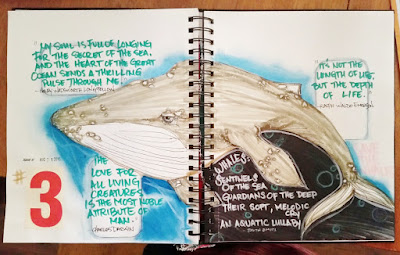 "MY SOUL IS FULL OF LONGING
FOR THE SECRET OF THE SEA,
AND THE HEART OF THE GREAT
OCEAN SENDS A THRILLING
PULSE THROUGH ME."
- HENRY WADSWORTH LONGFELLOW
"IT'S NOT THE
LENGTH OF LIFE,
BUT THE DEPTH
OF LIFE."
- RALPH WALDO EMERSON
#3
THE
LOVE FOR
ALL LIVING
CREATURES
IS THE MOST NOBLE
ATTRIBUTE OF
MAN.
CHARLES DARWIN
WHALES:
SENTINELS
OF THE SEA
GUARDIANS OF THE DEEP
THEIR SOFT, MELODIC
CRY
AN AQUATIC LULLABY